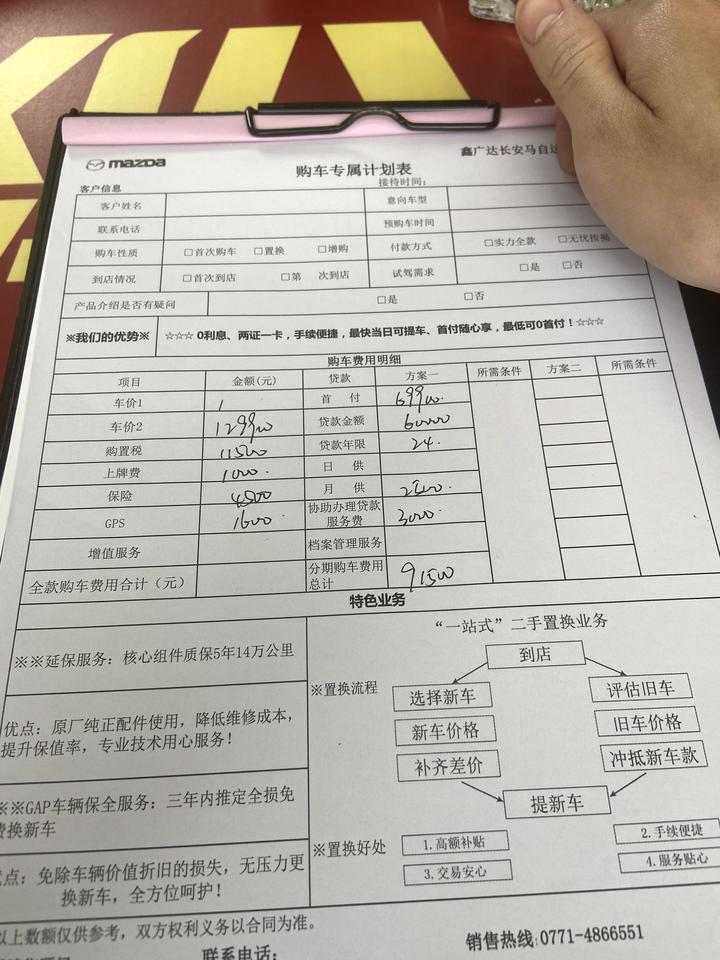 mazda
鑫广达长安马自达
购车专属计划表
客户信息 接待时间：
客户姓名 意向车型
联系电话 预购车时间
购车性质 □首次购车 □置换 □增购 付款方式 □实力全款 □无忧按揭
到店情况 □首次到店 □第 次到店 试驾需求 □是 □否
产品介绍是否有疑问 □是 □否
※我们的优势※ ☆☆☆ 0利息、两证一卡，手续便捷，最快当日可提车、首付随心享，最低可0首付！☆☆☆
购车费用明细
项目 金额(元) 贷款 方案一 所需条件 方案二 所需条件
车价1 首 付 69900
车价2 129900 贷款金额 60000
购置税 11500 贷款年限 24
上牌费 1000 日 供
保险 4500 月 供 2500
GPS 1600 协助办理贷款服务费 3000
增值服务 档案管理服务
全款购车费用合计（元） 分期购车费用总计 91500
特色业务
※※延保服务：核心组件质保5年14万公里
优点：原厂纯正配件使用，降低维修成本，
提升保值率，专业技术用心服务！
※※GAP车辆保全服务：三年内推定全损免
费换新车
优点：免除车辆价值折旧的损失，无压力更
换新车，全方位呵护！
“一站式”二手置换业务
※置换流程
到店
选择新车 评估旧车
新车价格 旧车价格
补齐差价 冲抵新车款
提新车
※置换好处
1.高额补贴 2.手续便捷
3.交易安心 4.服务贴心
以上数额仅供参考，双方权利义务以合同为准。
联系电话： 销售热线：0771-4866551